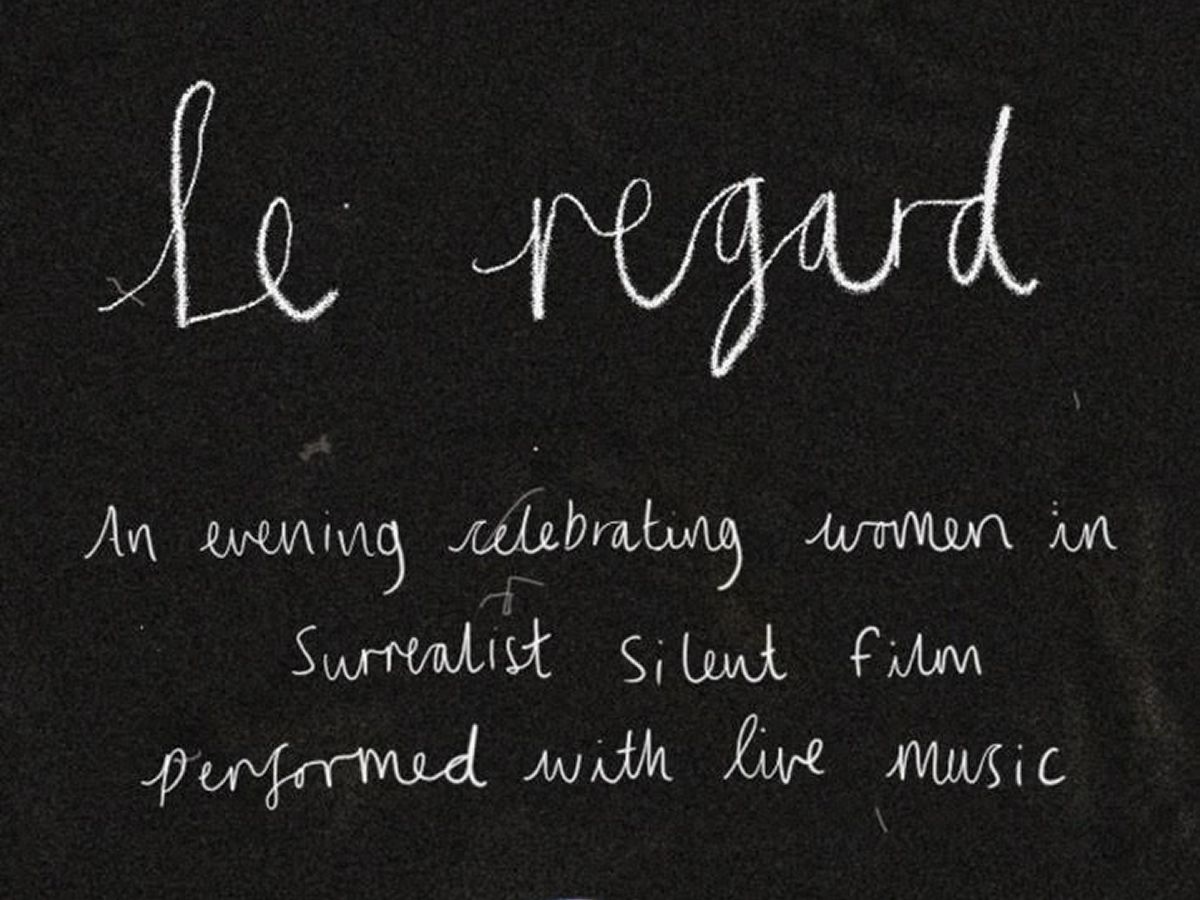 Le regard
An evening celebrating women in
Surrealist Silent film
performed with live music